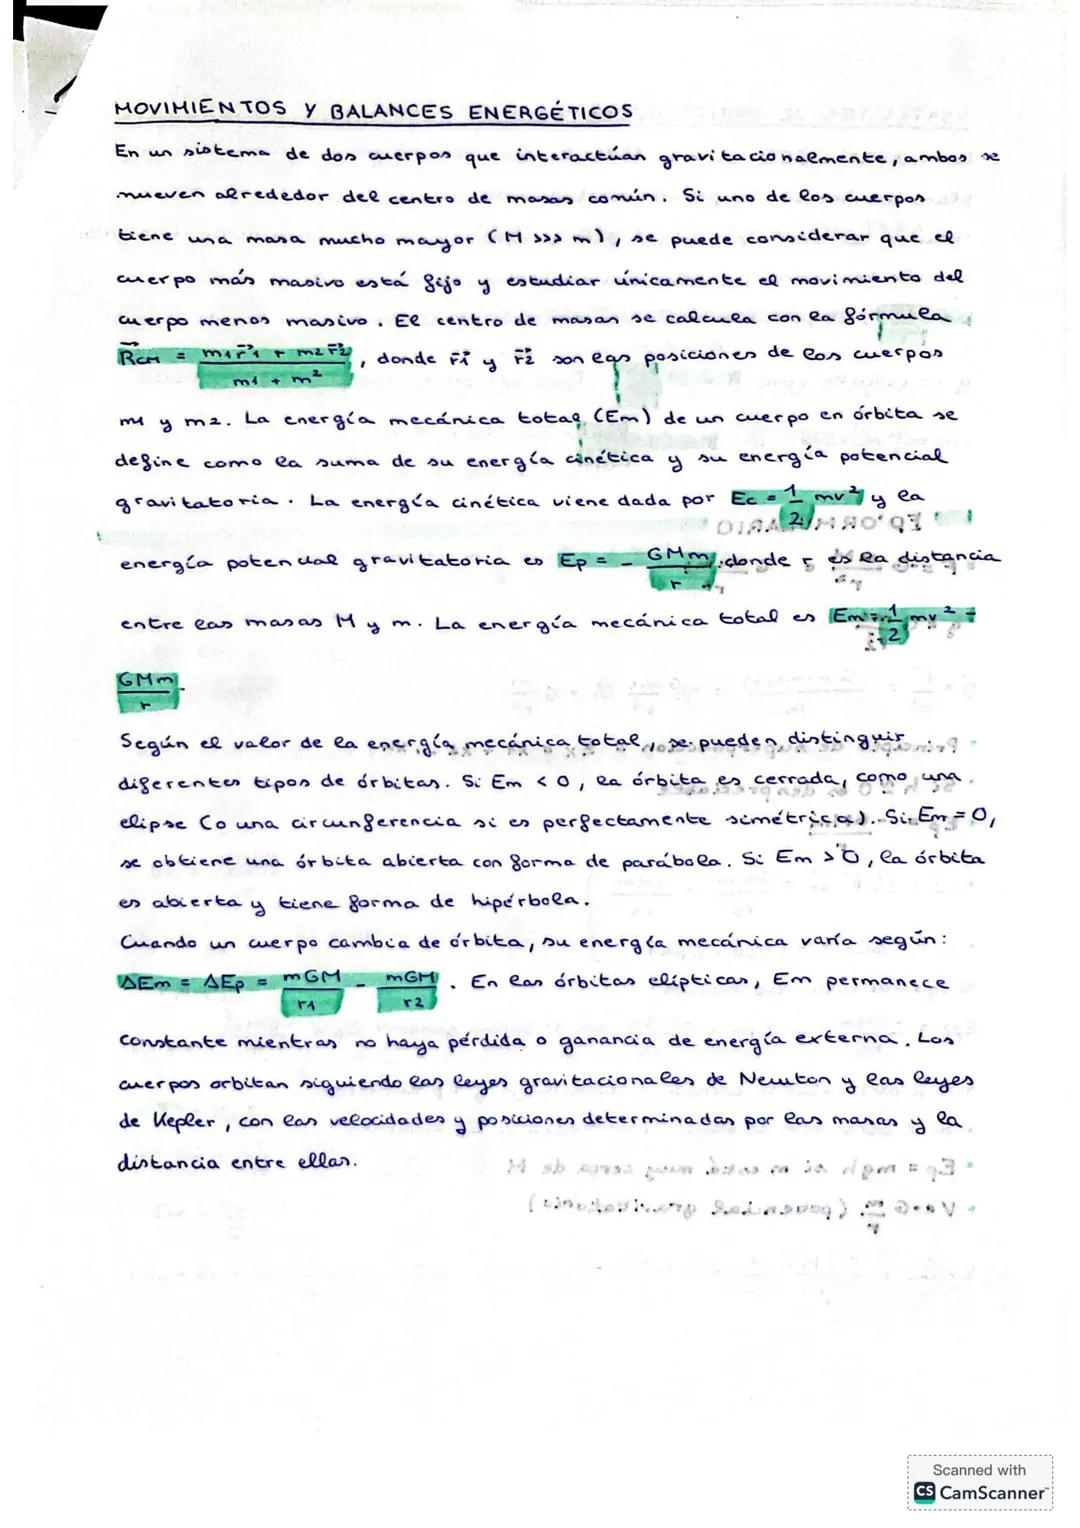 MOVIMIENTOS Y BALANCES ENERGÉTICOS
En un sistema de dos cuerpos que interactúan gravitacionalmente, ambos se
mueven alrededor del centro de masas común. Si uno de los cuerpos
tiene una masa mucho mayor (M >>> m), se puede considerar que el
cuerpo más masivo está fijo y estudiar únicamente el movimiento del
cuerpo menos masivo. El centro de masas se calcula con la fórmula
R⃗cm = (m1r⃗1 + m2r⃗2) / (m1 + m²), donde r⃗1 y r⃗2 son las posiciones de los cuerpos
m1 y m2. La energía mecánica total (Em) de un cuerpo en órbita se
define como la suma de su energía cinética y su energía potencial
gravitatoria. La energía cinética viene dada por Ec = 1/2 mv² y la
energía potencial gravitatoria es Ep = - GMm/r, donde r es la distancia
entre las masas M y m. La energía mecánica total es Em = 1/2 mv² -
GMm/r.
Según el valor de la energía mecánica total, se pueden distinguir
diferentes tipos de órbitas. Si Em < 0, la órbita es cerrada, como una
elipse (o una circunferencia si es perfectamente simétrica). Si Em = 0,
se obtiene una órbita abierta con forma de parábola. Si Em > 0, la órbita
es abierta y tiene forma de hipérbola.
Cuando un cuerpo cambia de órbita, su energía mecánica varía según:
ΔEm = ΔEp = mGM/r1 - mGM/r2. En las órbitas elípticas, Em permanece
constante mientras no haya pérdida o ganancia de energía externa. Los
cuerpos orbitan siguiendo las leyes gravitacionales de Newton y las leyes
de Kepler, con las velocidades y posiciones determinadas por las masas y la
distancia entre ellas.
Scanned with
CS CamScanner